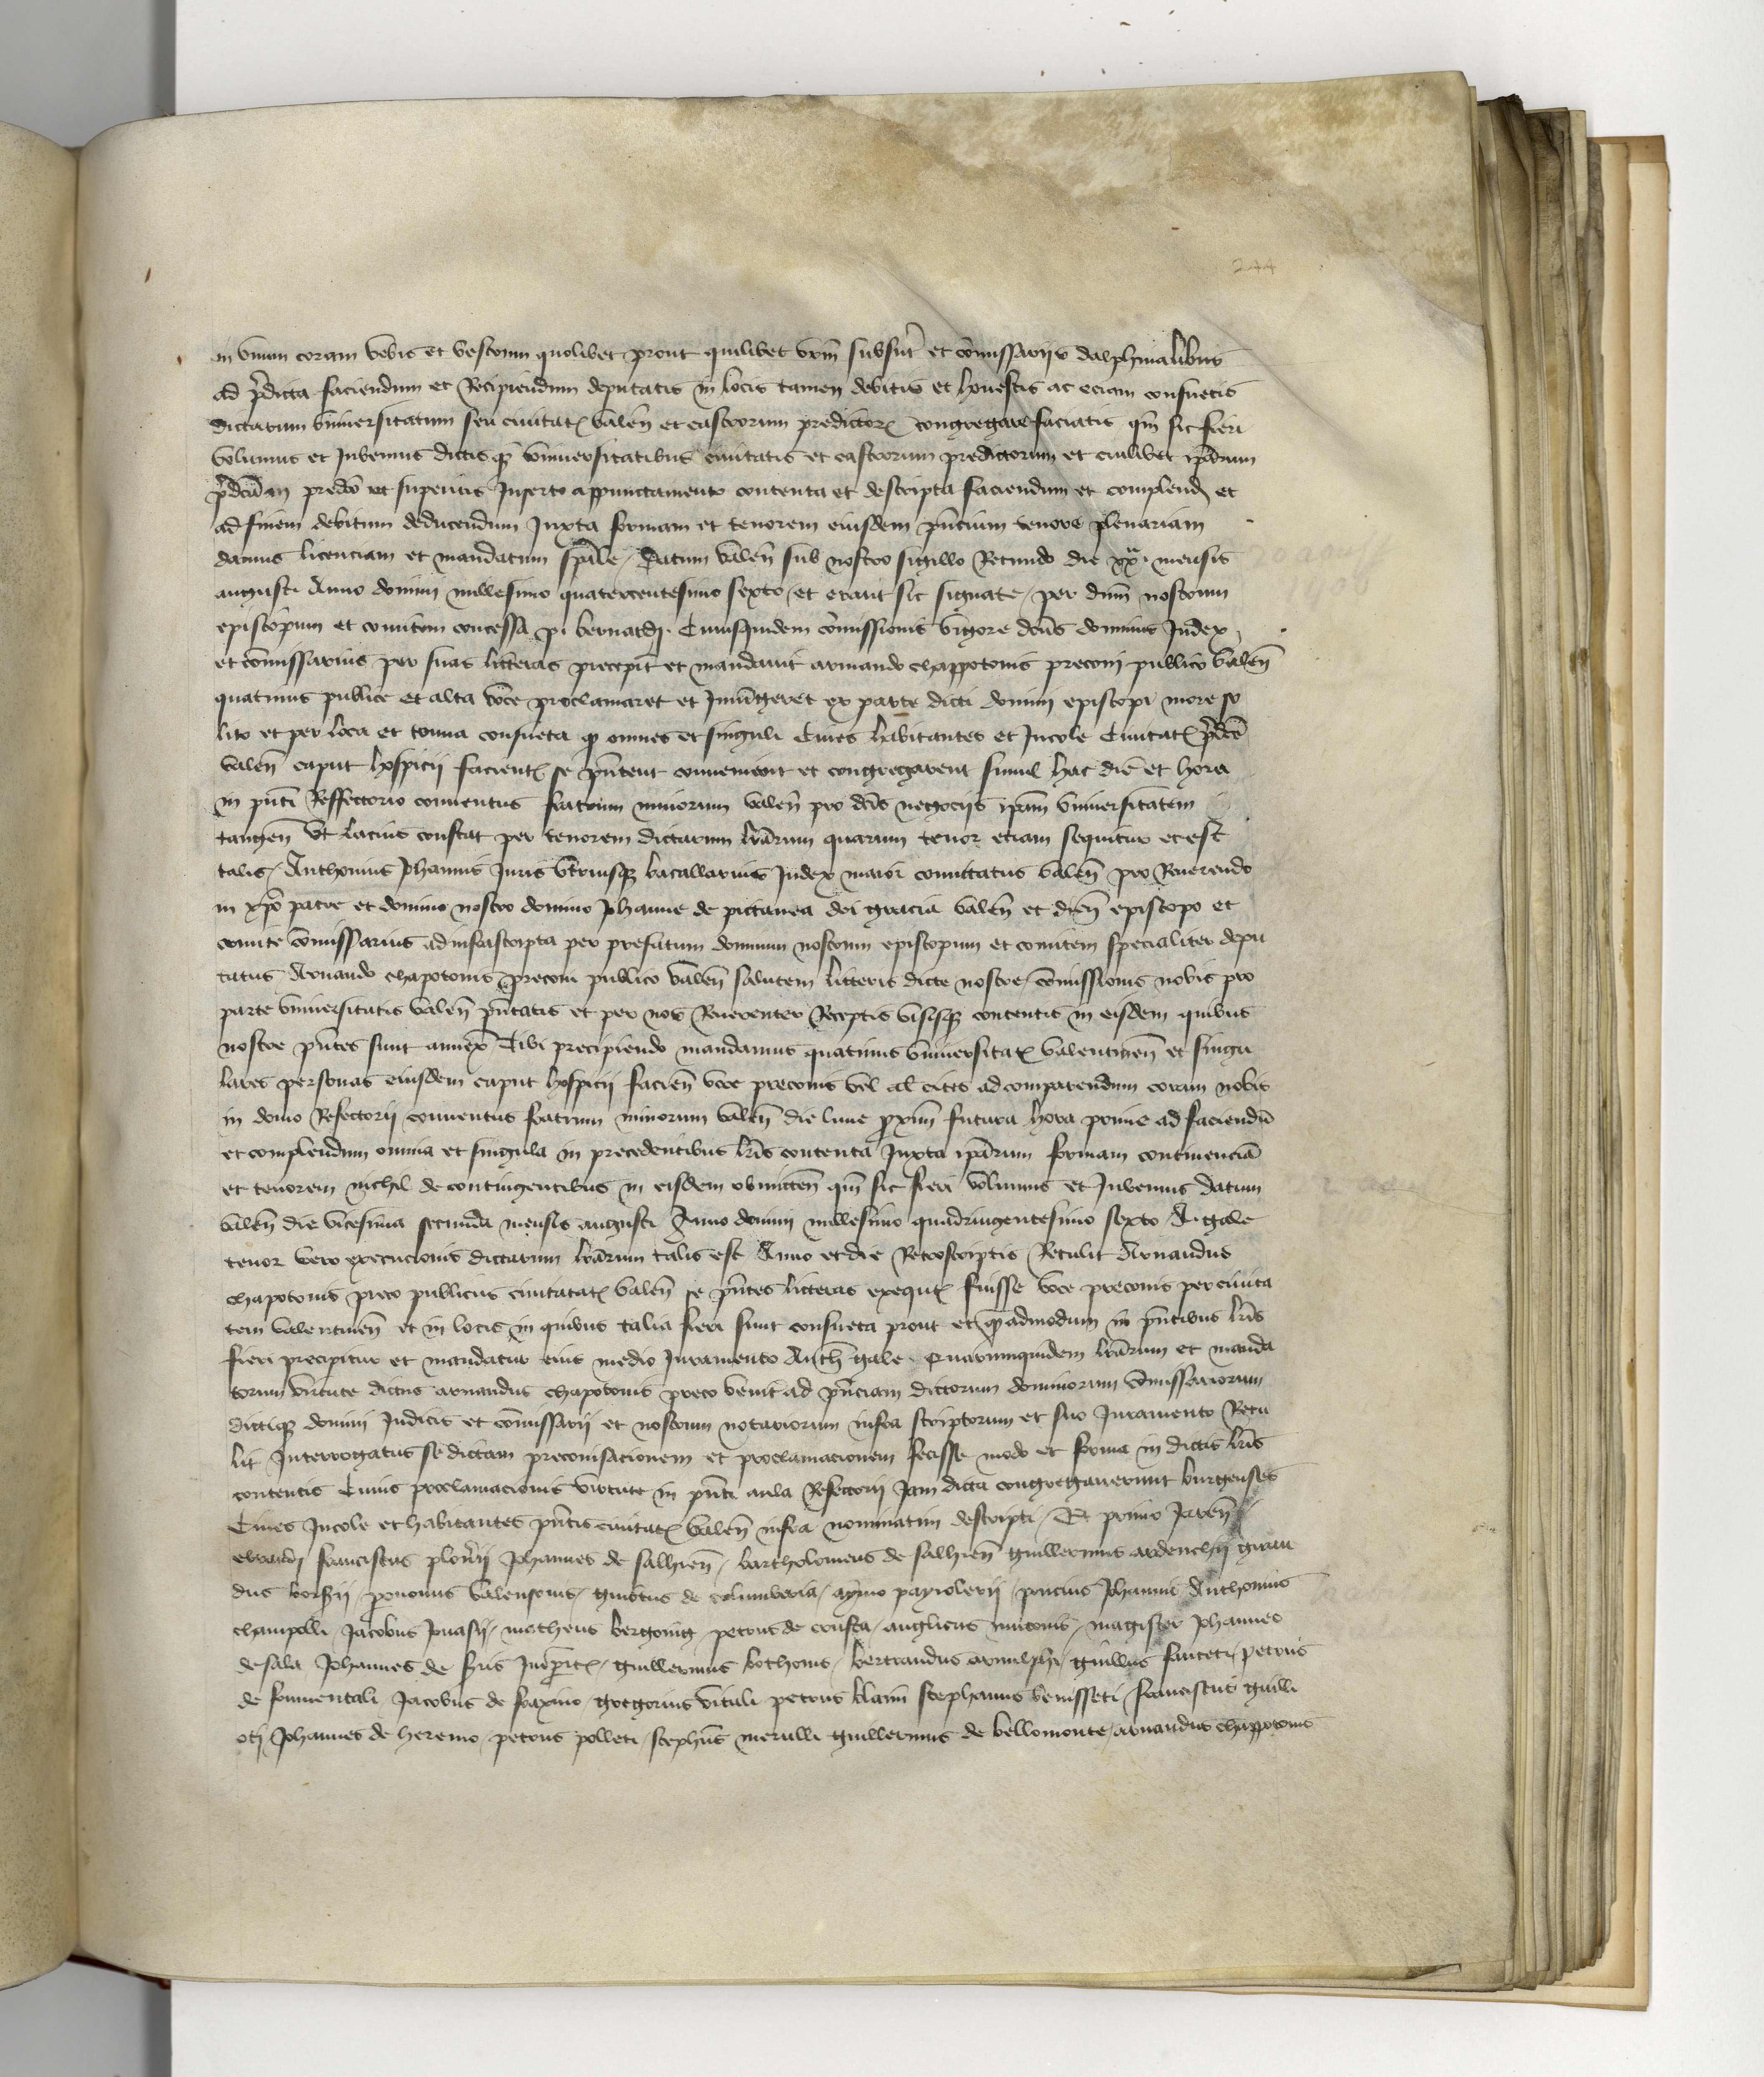 244
in unum coram vobis et vestrum quolibet prout quilibet vrm subfuit et comissariis dalphinalibus
ad predicta faciendum et Recipiendum deputatis in locis tamen debitis et honestis ac eciam consuetis
dictarum universitatum seu civitatis valen et castrorum predictorum congregare faciatis qm sic fieri
volumus et Jubemus dictisque universitatibus civitatis et castrorum predictorum et cuilibet ipsarum
in predco ut superius Inserto appunctamento contenta et descripta faciendum et complend et
ad finem debitum deducendum Juxta formam et tenorem eiusdem pncium tenore plenariam
damus licenciam et mandatum spale / Datum valen sub nostro sigillo Retundo die xxa mensis
augusti Anno domini millesimo quatercentesimo sexto / et erant sic signate / per dnm nostrum
episcopum et comitem concessa p. bernardi. Cuiusquidem comissionis vigore dcus dominus Judex
et comissarius per suas litteras precepit et mandavit armando chappotonis preconi publico valen
quatinus publice et alta voce proclamaret et Iniungeret ex parte dicti domini episcopi more so
lito et per loca et consueta q omnes et singuli Cives habitantes et Incole Civitatis pdce
valen caput hospicii facientes se pntent convenirent et congregarent simul hac die et hora
in pnti Reffectorio conventus fratrum minorum valen pro dcis negociis ipam universitatem
tangen Ut lacius constat per tenorem dictarum lrarum quarum tenor eciam sequitur et est
talis / Anthonius Johannis Juris utriusque bacallarius Judex maior comitatus valen pro Reverendo
in xpo patre et domino nostro domino Johanne de pictavia dei gracia valen et dien episcopo et
comite comissarius ad infrascripta per prefatum dominum nostrum episcopum et comitem specialiter depu
tatus Armando chapotonis preconi publico valen salutem litteris dicte nostre comissionis nobis pro
parte universitatis valen pntatis et per nos Reverenter Receptis visisque contentis in eisdem quibus
nostre pntes sunt annexe Tibi precipiendo mandamus quatinus universitatem valentinen et singu
lares personas eiusdem caput hospicii facien voce preconis vel al cites ad comparendum coram nobis
in domo Refectorii conventus fratrum minorum valen die lune proxim futura hora prime ad faciendu
et complendum omnia et singula in precedentibus lris contenta Juxta ipsarum formam continencia
et tenorem nichil de contingentibus in eisdem obmitten qm sic fieri volumus et Jubemus datum
valen die vicesima secunda mensis augusti Anno domini millesimo quadringentesimo sexto A. gale
tenor vero execucionis dictarum lrarum talis est Anno et die Retroscriptis Retulit Armandus
chapotonis preco publicus civitatis valen se pntes litteras exequt fuisse voce preconis per civita
tem valentinen et in locis in quibus talia fieri sunt consueta prout et quadmodum in pntibus lris
fieri precipitur et mandatur eius medio Iuramento Anth gale. Quarumquidem lrarum et manda
torum virtute dictus armandus chapotonis preco venit ad pnciam dictorum dominorum comissariorum
dictique domini Judicis et comissarii et nostrum notariorum infra scriptorum et suo Iuramento Retu
lit Interrogatus se dictam preconisacionem et proclamacionem fecisse modo et forma in dictis lris
contentis Cuius proclamacionis virtute in pnti aula Refectorii Jam dicta congregaverunt burgenses
Cives Incole et habitantes pntis civitatis valen infra nominatim descripti / Et primo
ebrardi franciscus Johannes de salhien / bartholomeus de salhien guillermus ardenchii girau
dus / valensonis / de columberia / aymo payrolerii / poncius Johannis Anthonius
champelli / Jacobus / matheus bergoing petrus de crusta / anglicus / magister Johannes
de sala Johannes de / guillermus bothonis / bertrandus arnulphi guillus fauceti / petrus
de fonmentali Jacobus de fraxino / gregorius vitali petrus stephanus benisseti franciscus guilli
oti Johannes de heremo / petrus polleti / stephus merulli guillermus de bellomonte / armandus chappotonis